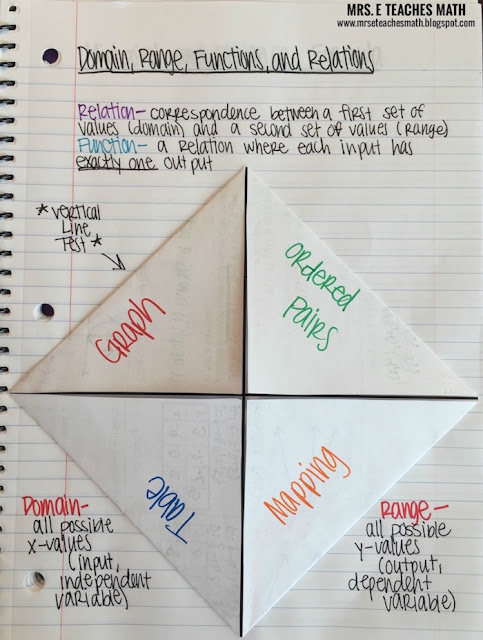 MRS. E TEACHES MATH
www.mrseteachesmath.blogspot.com
Domain, Range, Functions, and Relations
Relation- correspondence between a first set of
values (domain) and a second set of values (range)
Function- a relation where each input has
exactly one output
*Vertical
Line
Test*
Graph
Ordered
Pairs
Table
Mapping
Domain-
all possible
x-values
(input,
independent
variable)
Range-
all possible
y-values
(output,
dependent
variable)